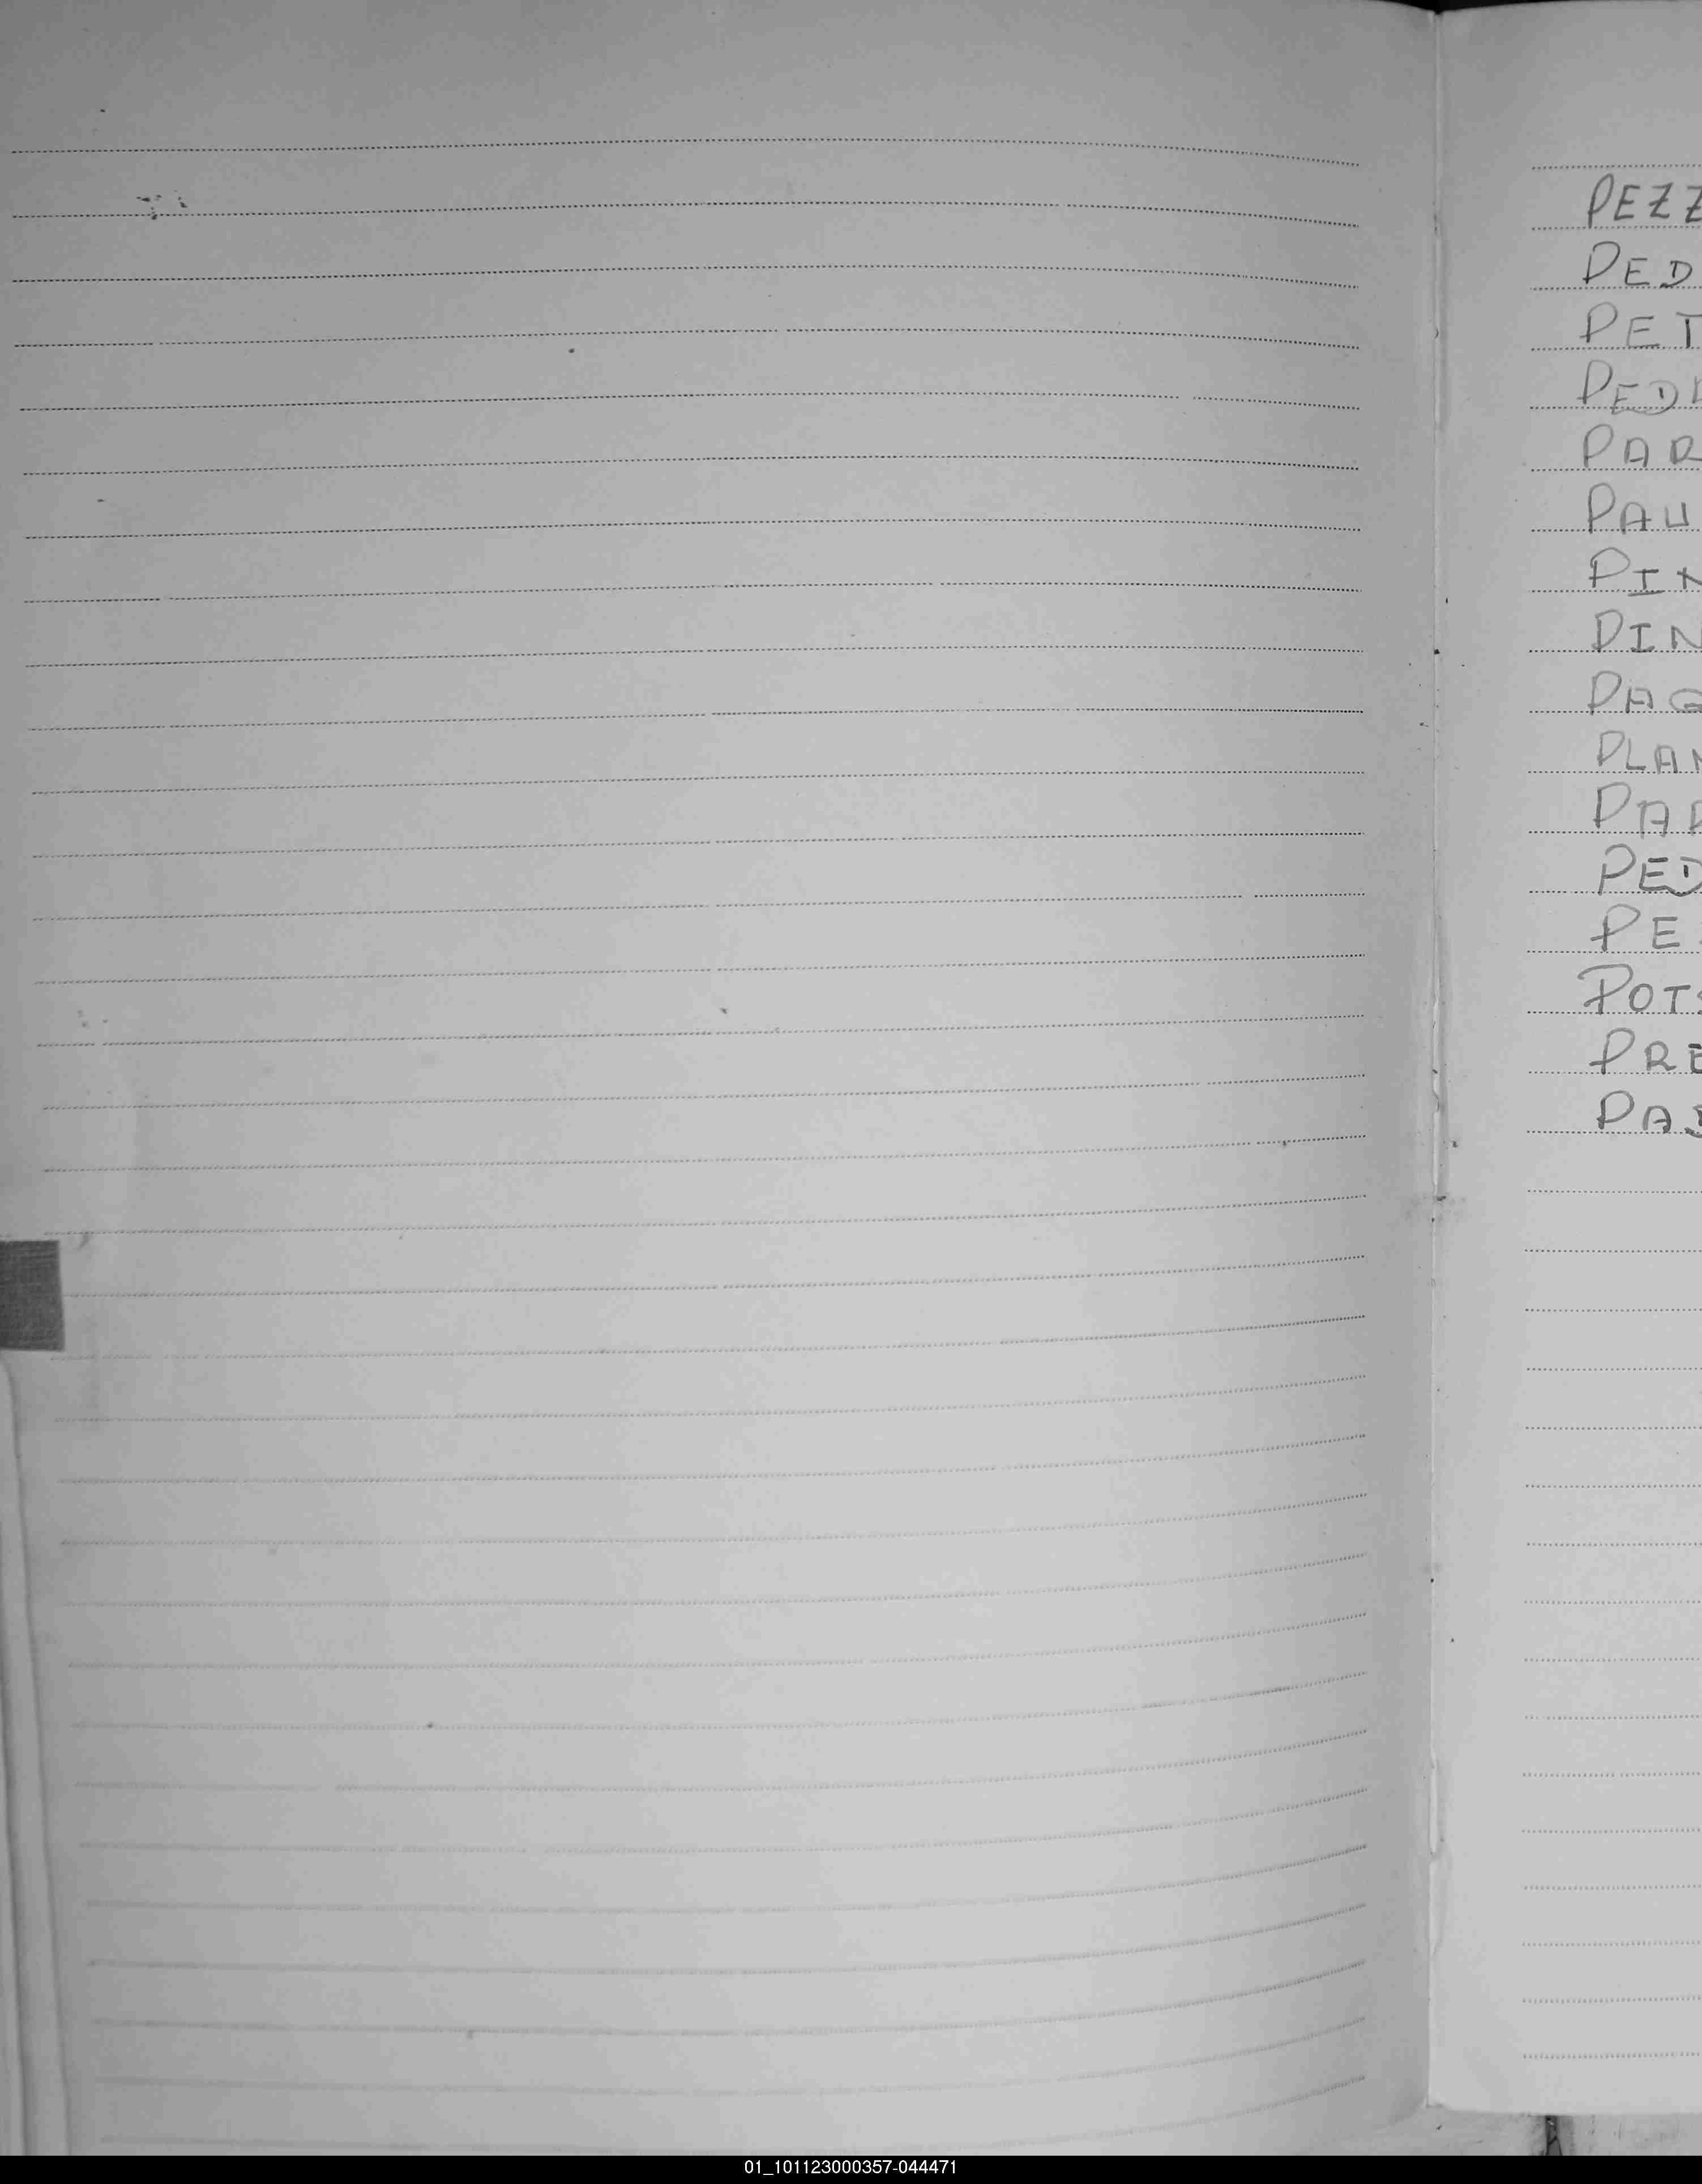 PEZZ
PED
PET
PED
PAR
PAU
PIN
PIN
PAG
PLAN
PAR
PED
PE
POT
PRE
PAS
01_101123000357-044471